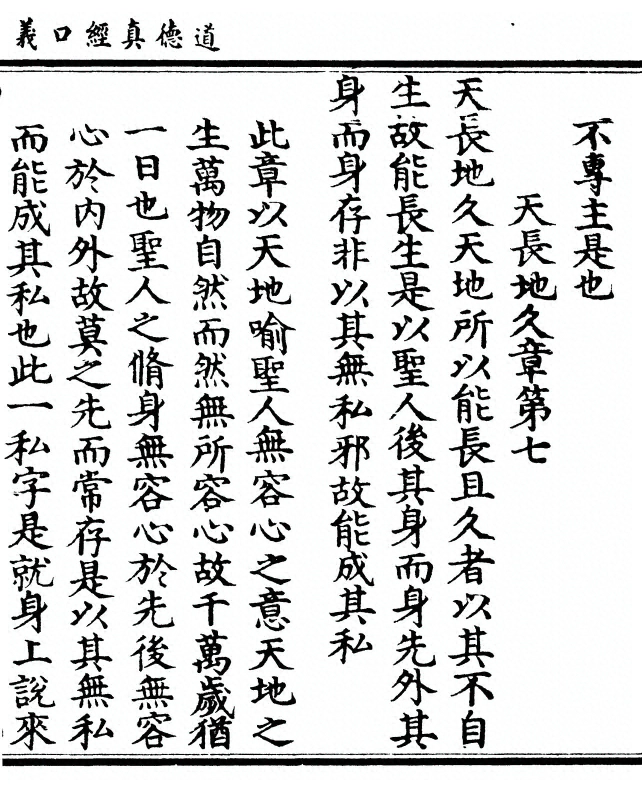 道德真經口義
不專主是也
天長地久章第七
天長地久天地所以能長且久者以其不自
生故能長生是以聖人後其身而身先外其
身而身存非以其無私邪故能成其私
此章以天地喻聖人無容心之意天地之
生萬物自然而然無所容心故千萬歲猶
一日也聖人之脩身無容心於先後無容
心於内外故莫之先而常存是以其無私
而能成其私也此一私字是就身上說來